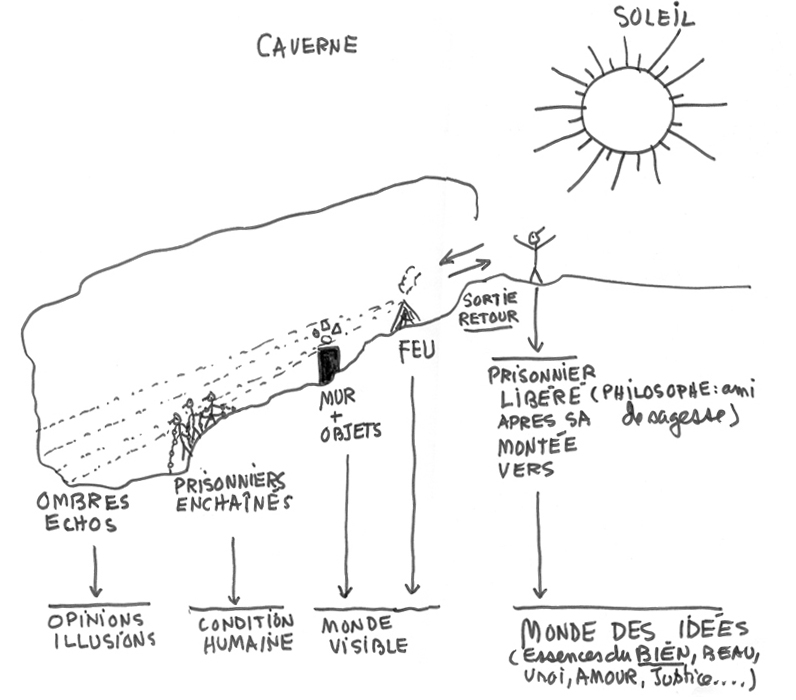 SOLEIL
CAVERNE
SORTIE
RETOUR
FEU
MUR
+
OBJETS
PRISONNIER
LIBÉRÉ (PHILOSOPHE: ami
APRES SA de sagesse)
MONTÉE
VERS
PRISONNIERS
ENCHAÎNÉS
OMBRES
ECHOS
OPINIONS
ILLUSIONS
CONDITION
HUMAINE
MONDE
VISIBLE
MONDE DES IDÉES
(Essences du BIEN, BEAU,
Vrai, AMOUR, Justice....)